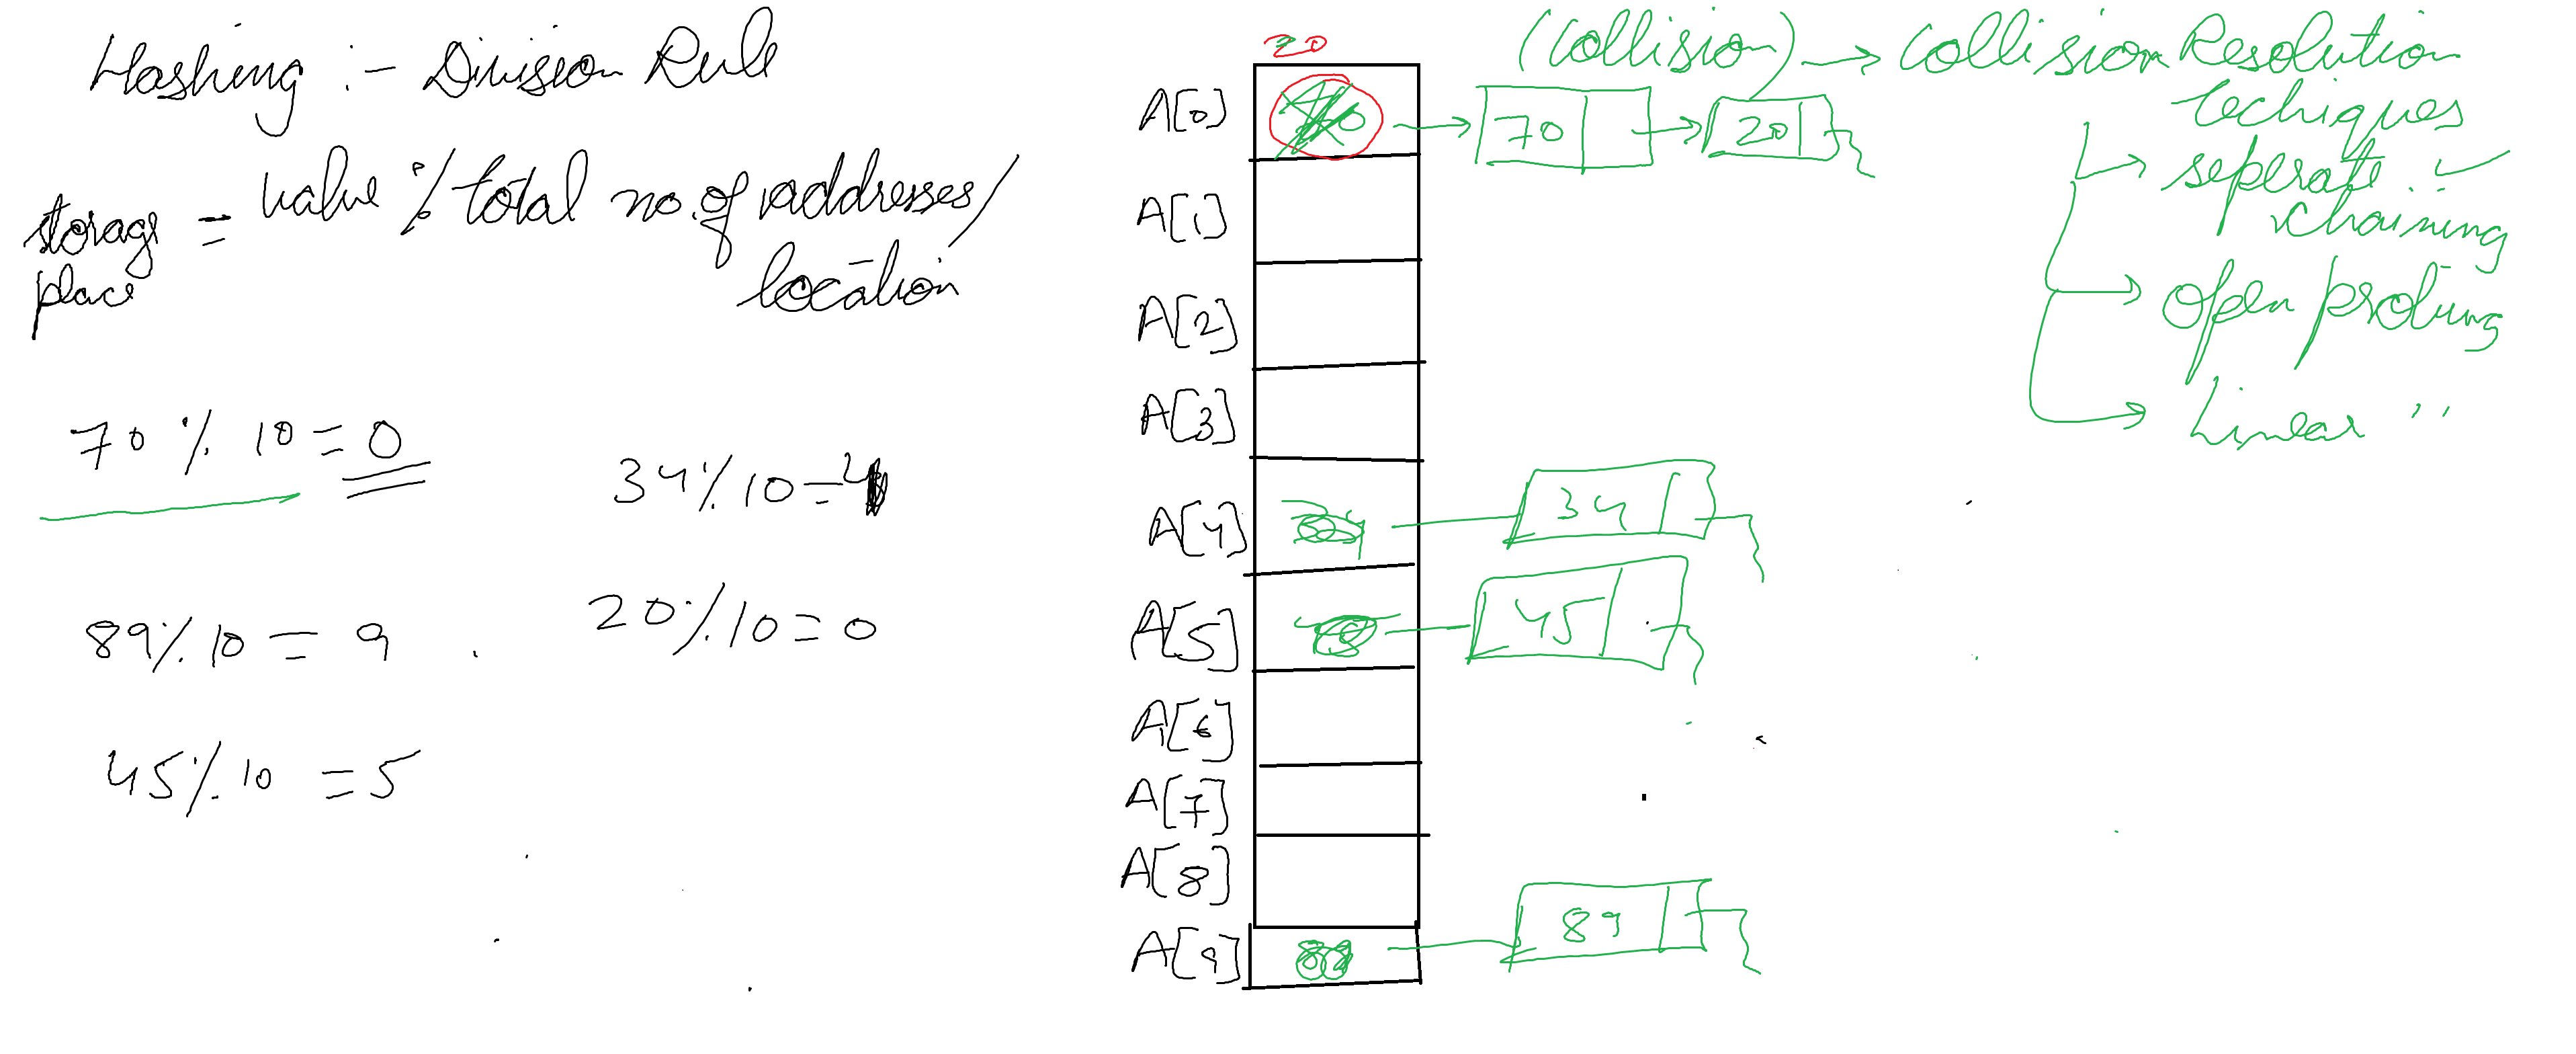 Hashing :- Division Rule
storage place = value % total no. of addresses/
location
70 % 10 = 0
34 % 10 = 4
89 % 10 = 9
20 % 10 = 0
45 % 10 = 5
20
A[0]
A[1]
A[2]
A[3]
A[4]
A[5]
A[6]
A[7]
A[8]
A[9]
70
20
34
45
89
(Collision) → Collision Resolution
techiques
seperate
chaining
open probing
Linear ''